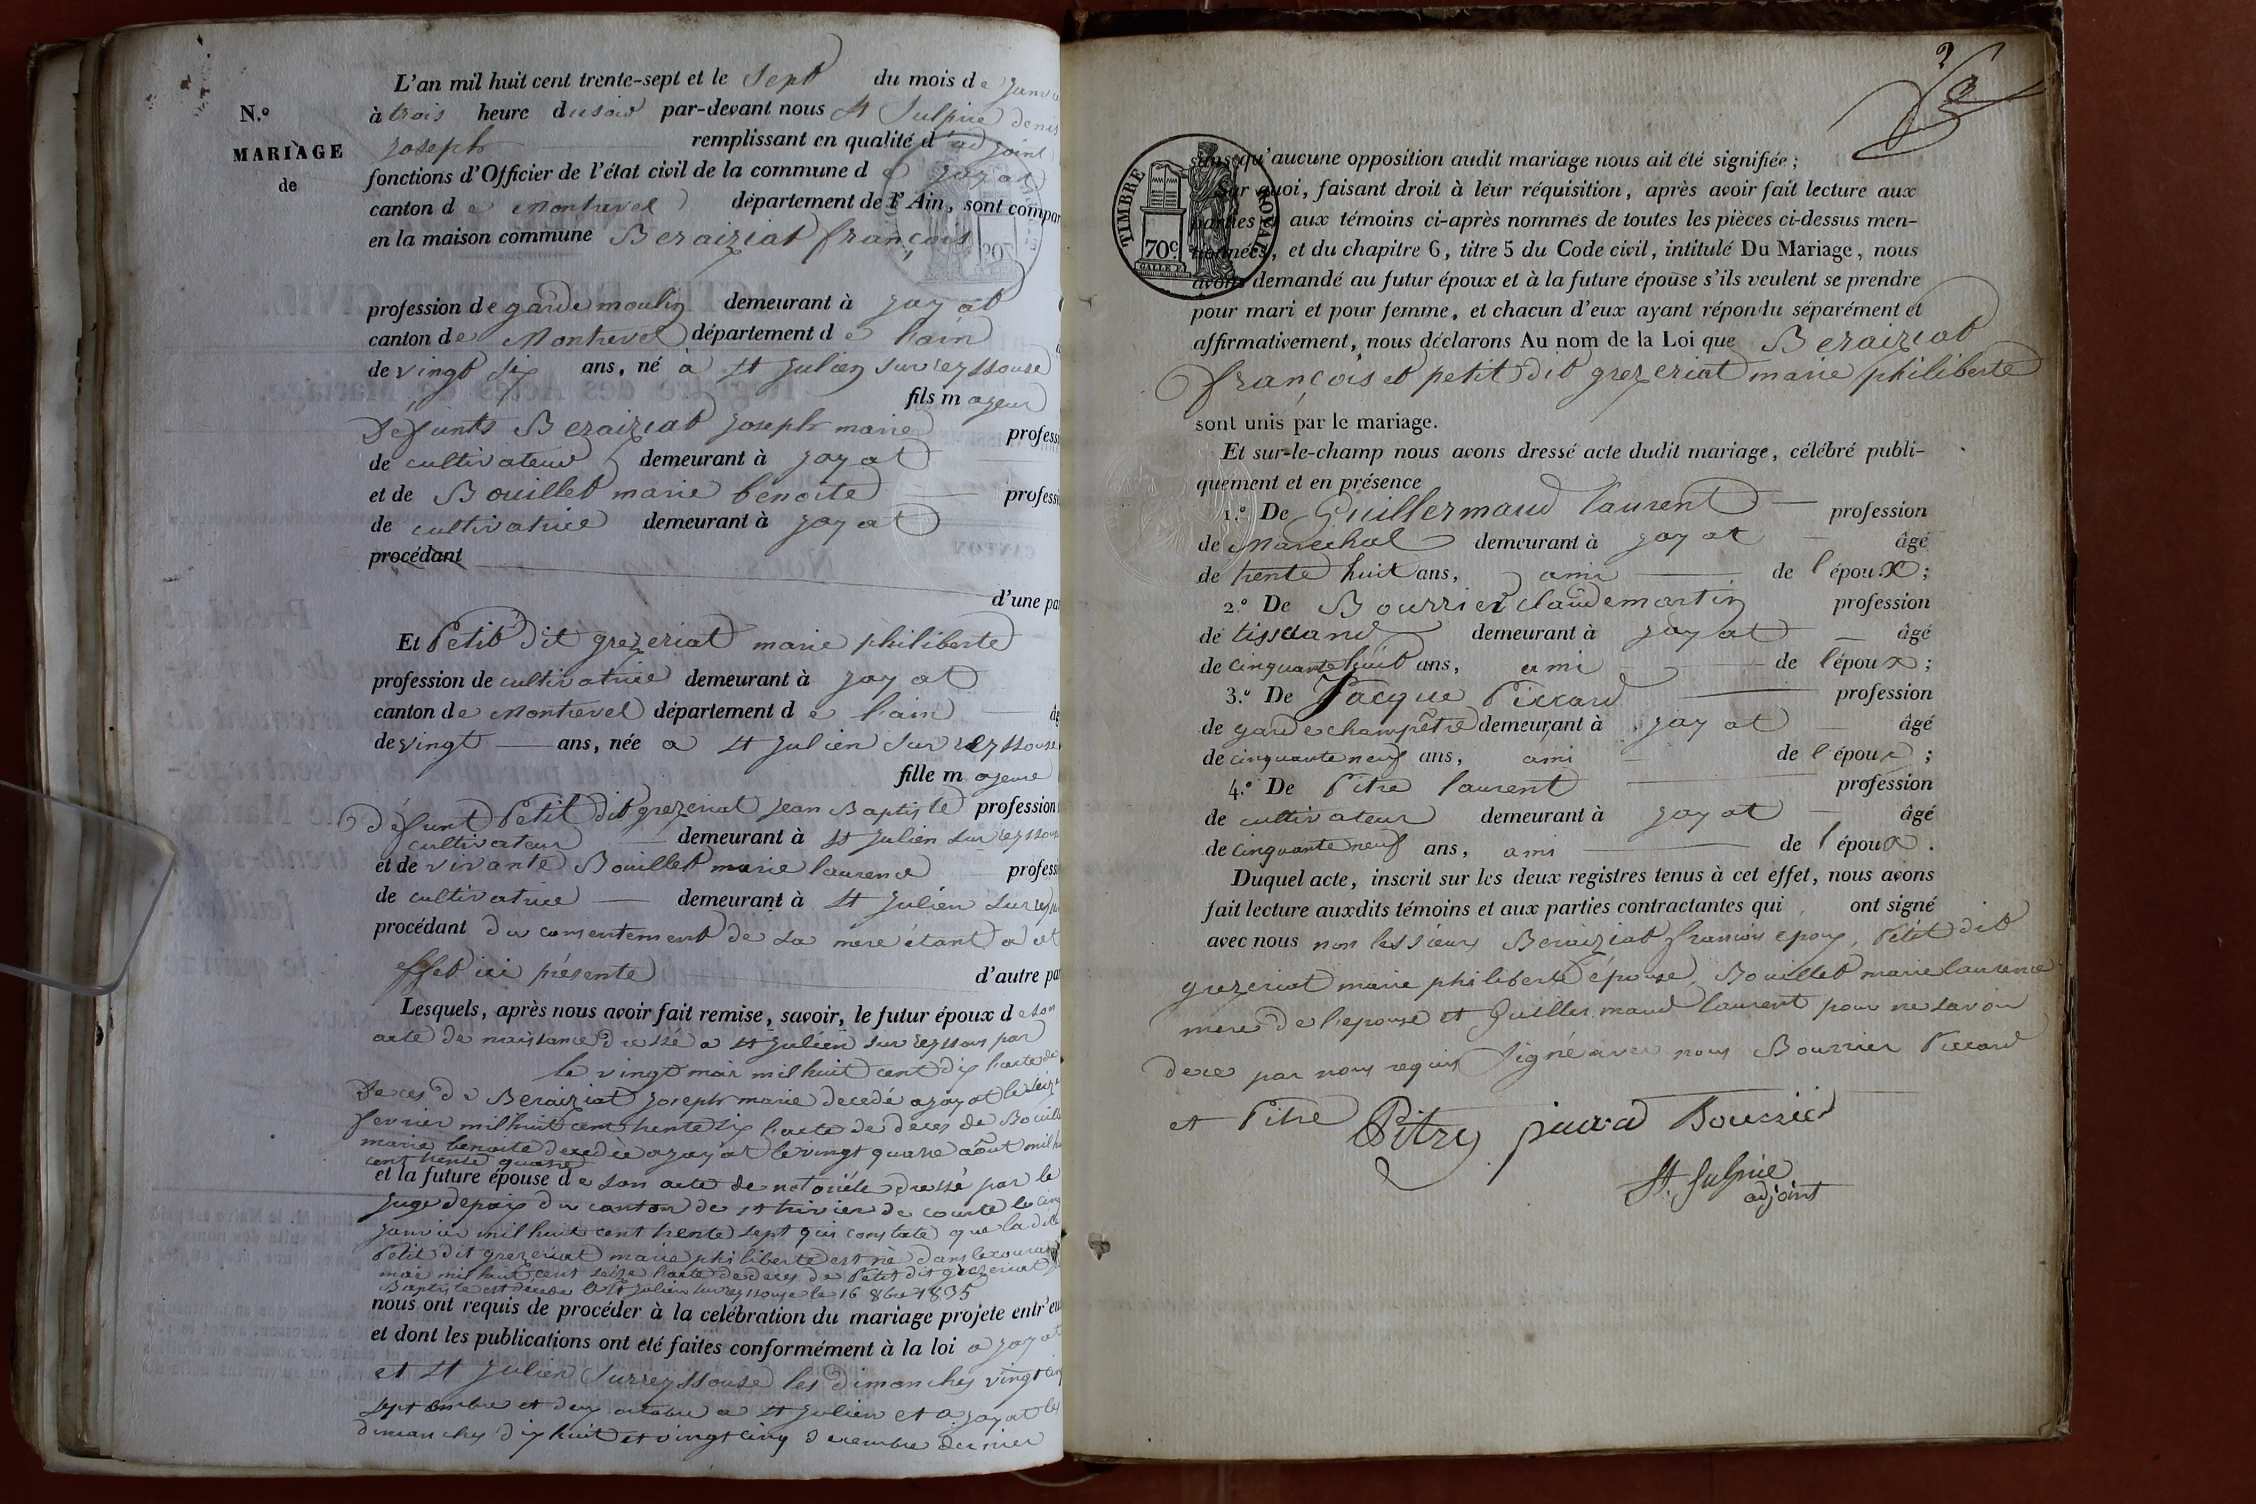 N.º
MARIAGE
de
L'an mil huit cent trente-sept et le Sept du mois de Janvie
à trois heure du soir par-devant nous St Sulpice denis
joseph remplissant en qualité d'adjoint
fonctions d'Officier de l'état civil de la commune de jayat
canton de Montrevel département de l'Ain, sont compar
en la maison commune Beraiziat françois
profession de garde moulin demeurant à jayat
canton de Montrevel département de l'ain
de vingt six ans, né à St julien sur reyssouse
fils majeur
Défunts Beraiziat joseph marie profess
de cultivateur demeurant à jayat
et de Bouillet marie benoite profess
de cultivatrice demeurant à jayat
procédant
d'une pa
Et Petit dit grezeriat marie philiberte
profession de cultivatrice demeurant à jayat
canton de Montrevel département de l'ain âg
de vingt ans, née a St julien sur reyssouse
fille majeure
Défunt Petit dit grezeriat jean Baptiste profession
cultivateur demeurant à St julien sur reyssouse
et de vivante Bouillet marie laurence profess
de cultivatrice demeurant à St julien sur rey
procédant du consentement de sa mere étant a cet
effet ici présente d'autre pa
Lesquels, après nous avoir fait remise, savoir, le futur époux de son
acte de naissance dressé a St julien sur reyssous par
le vingt mai mil huit cent dix l'acte de
Deces de Beraiziat joseph marie decedé a jayat le seize
fevrier mil huit cent trente six l'acte de deces de Bouill
marie benoite decedée a jayat le vingt quatre août mil hu
cent trente quatre
et la future épouse de son acte de notoriété dressé par le
juge de paix du canton de St trivier de courte le cinq
janvier mil huit cent trente sept qui constate que la dite
Petit dit grezeriat marie philiberte est né dans le courant
mai mil huit cent seize l'acte de deces de Petit dit grezeriat
Baptiste est décédé a St julien sur reyssouse le 16 8bre 1835
nous ont requis de procéder à la celébration du mariage projeté entr'eu
et dont les publications ont été faites conformément à la loi a jayat
et St julien sur reyssouse les dimanches vingt cinq
septembre et deux octobre a St julien et a jayat les
dimanches dix huit et vingt cinq decembre dernier
2
TIMBRE ROYAL
70c
sans qu'aucune opposition audit mariage nous ait été signifiée;
Sur quoi, faisant droit à leur réquisition, après avoir fait lecture aux
parties et aux témoins ci-après nommés de toutes les pièces ci-dessus men-
tionnées, et du chapitre 6, titre 5 du Code civil, intitulé Du Mariage, nous
avons demandé au futur époux et à la future épouse s'ils veulent se prendre
pour mari et pour femme, et chacun d'eux ayant répondu séparément et
affirmativement, nous déclarons Au nom de la Loi que Beraiziat
françois et petit dit grezeriat marie philiberte
sont unis par le mariage.
Et sur-le-champ nous avons dressé acte dudit mariage, célébré publi-
quement et en présence
1.º De Guillermaud laurent profession
de Marechal demeurant à jayat âgé
de trente huit ans, ami de l'époux;
2.º De Bourrier claude martin profession
de tisserand demeurant à jayat âgé
de cinquante huit ans, ami de l'époux;
3.º De Jacque Piccard profession
de garde champêtre demeurant à jayat âgé
de cinquante neuf ans, ami de l'époux;
4.º De Pitre laurent profession
de cultivateur demeurant à jayat âgé
de cinquante neuf ans, ami de l'époux.
Duquel acte, inscrit sur les deux registres tenus à cet effet, nous avons
fait lecture auxdits témoins et aux parties contractantes qui ont signé
avec nous non les sieurs Beraiziat francois epoux, Petit dit
grezeriat marie philiberte épouse, Bouillet marie laurence
mere de l'epouse et Guillermaud laurent pour ne savoir
de ce par nous requis Signé avec nous Bourrier Piccard
et Pitre Pitre picard Bourrier
St Sulpice
adjoint